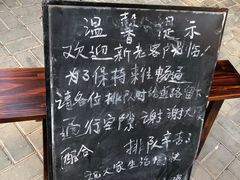 温馨提示
欢迎新老客户光临
为了保持来往畅通
请各位排队时给道路留下
通行空隙 谢谢大家
配合 排队辛苦了
祝大家生活愉快